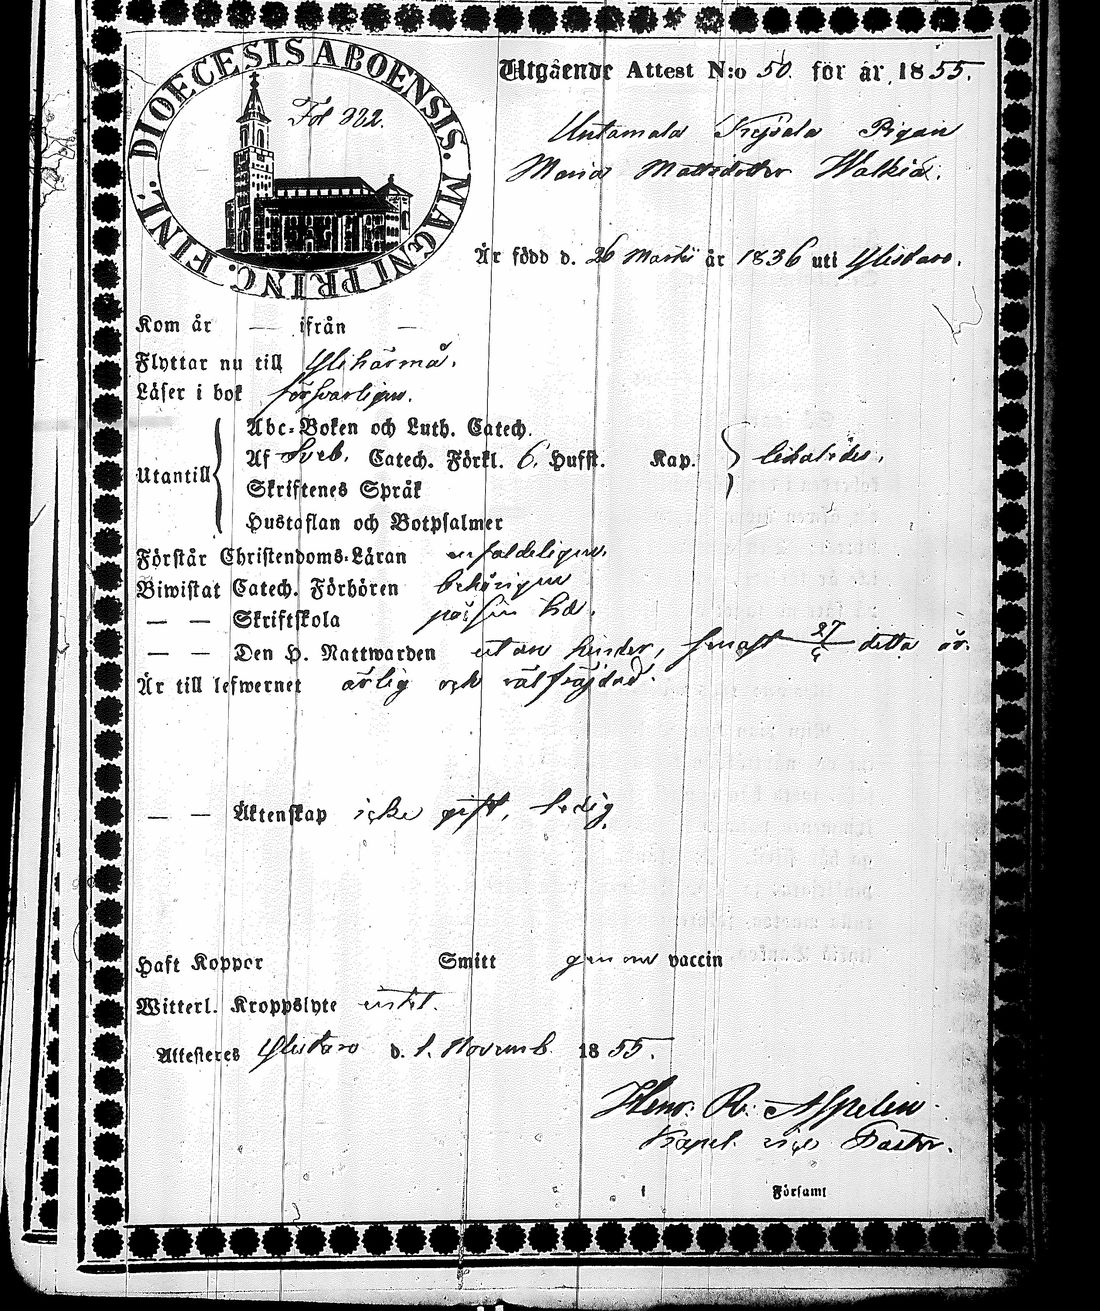 DIOECESIS ABOENSIS. MAGNI PRINC. FINL.
Fol 332.
Utgående Attest N:o 50. för år 1855.
Untamala Pigan
Maria Mattsdotter Walkia.
Är född d. 26 Martii år 1836 uti Ylistaro.
Kom år — ifrån —
Flyttar nu till Ylihärmä.
Läser i bok försvarligen.
Utantill
Abc-Boken och Luth. Catech.
Af Sveb. Catech. Förkl. 6. Hufst. Kap. likaledes,
Skriftenes Språk
Hustaflan och Botpsalmer
Förstår Christendoms-Läran enfaldeligen.
Biwistat Catech. Förhören behörigen
— — Skriftskola på sin tid.
— — Den H. Nattwarden utan hinder, senast 27/5 detta år.
Är till lefwernet ärlig och välfräjdad.
— — Äktenskap icke gift, ledig.
Haft Koppor Smitt genom vaccin
Witterl. Kroppslyte intet.
Attesteres Ylistaro d. 1. Novemb. 1855.
Henr. R. Aspelin
Kapel. vice Pastor.
i Församl